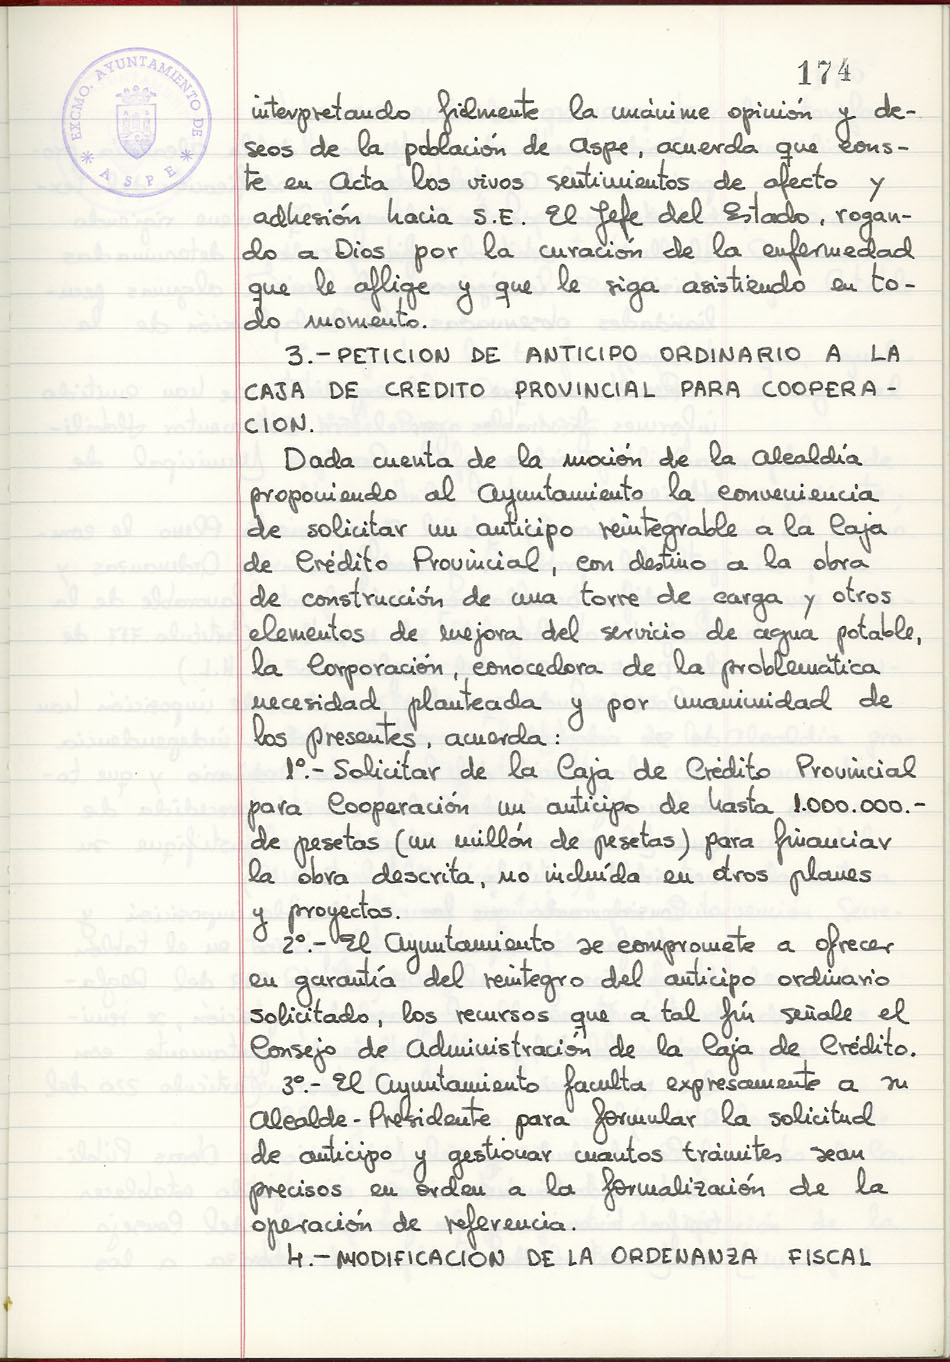 174
EXCMO. AYUNTAMIENTO DE
* ASPE *
interpretando fielmente la unánime opinión y de-
seos de la población de Aspe, acuerda que cons-
te en Acta los vivos sentimientos de afecto y
adhesión hacia S.E. El Jefe del Estado, rogan-
do a Dios por la curación de la enfermedad
que le aflige y que le siga asistiendo en to-
do momento.
3.- PETICION DE ANTICIPO ORDINARIO A LA
CAJA DE CREDITO PROVINCIAL PARA COOPERA-
CION.
Dada cuenta de la moción de la Alcaldía
proponiendo al Ayuntamiento la conveniencia
de solicitar un anticipo reintegrable a la Caja
de Crédito Provincial, con destino a la obra
de construcción de una torre de carga y otros
elementos de mejora del servicio de agua potable,
la Corporación, conocedora de la problemática
necesidad planteada y por unanimidad de
los presentes, acuerda:
1º.- Solicitar de la Caja de Crédito Provincial
para Cooperación un anticipo de hasta 1.000.000.-
de pesetas (un millón de pesetas) para financiar
la obra descrita, no incluída en otros planes
y proyectos.
2º.- El Ayuntamiento se compromete a ofrecer
en garantía del reintegro del anticipo ordinario
solicitado, los recursos que a tal fín señale el
Consejo de Administración de la Caja de Crédito.
3º.- El Ayuntamiento faculta expresamente a su
Alcalde-Presidente para formular la solicitud
de anticipo y gestionar cuantos trámites sean
precisos en orden a la formalización de la
operación de referencia.
4.- MODIFICACION DE LA ORDENANZA FISCAL